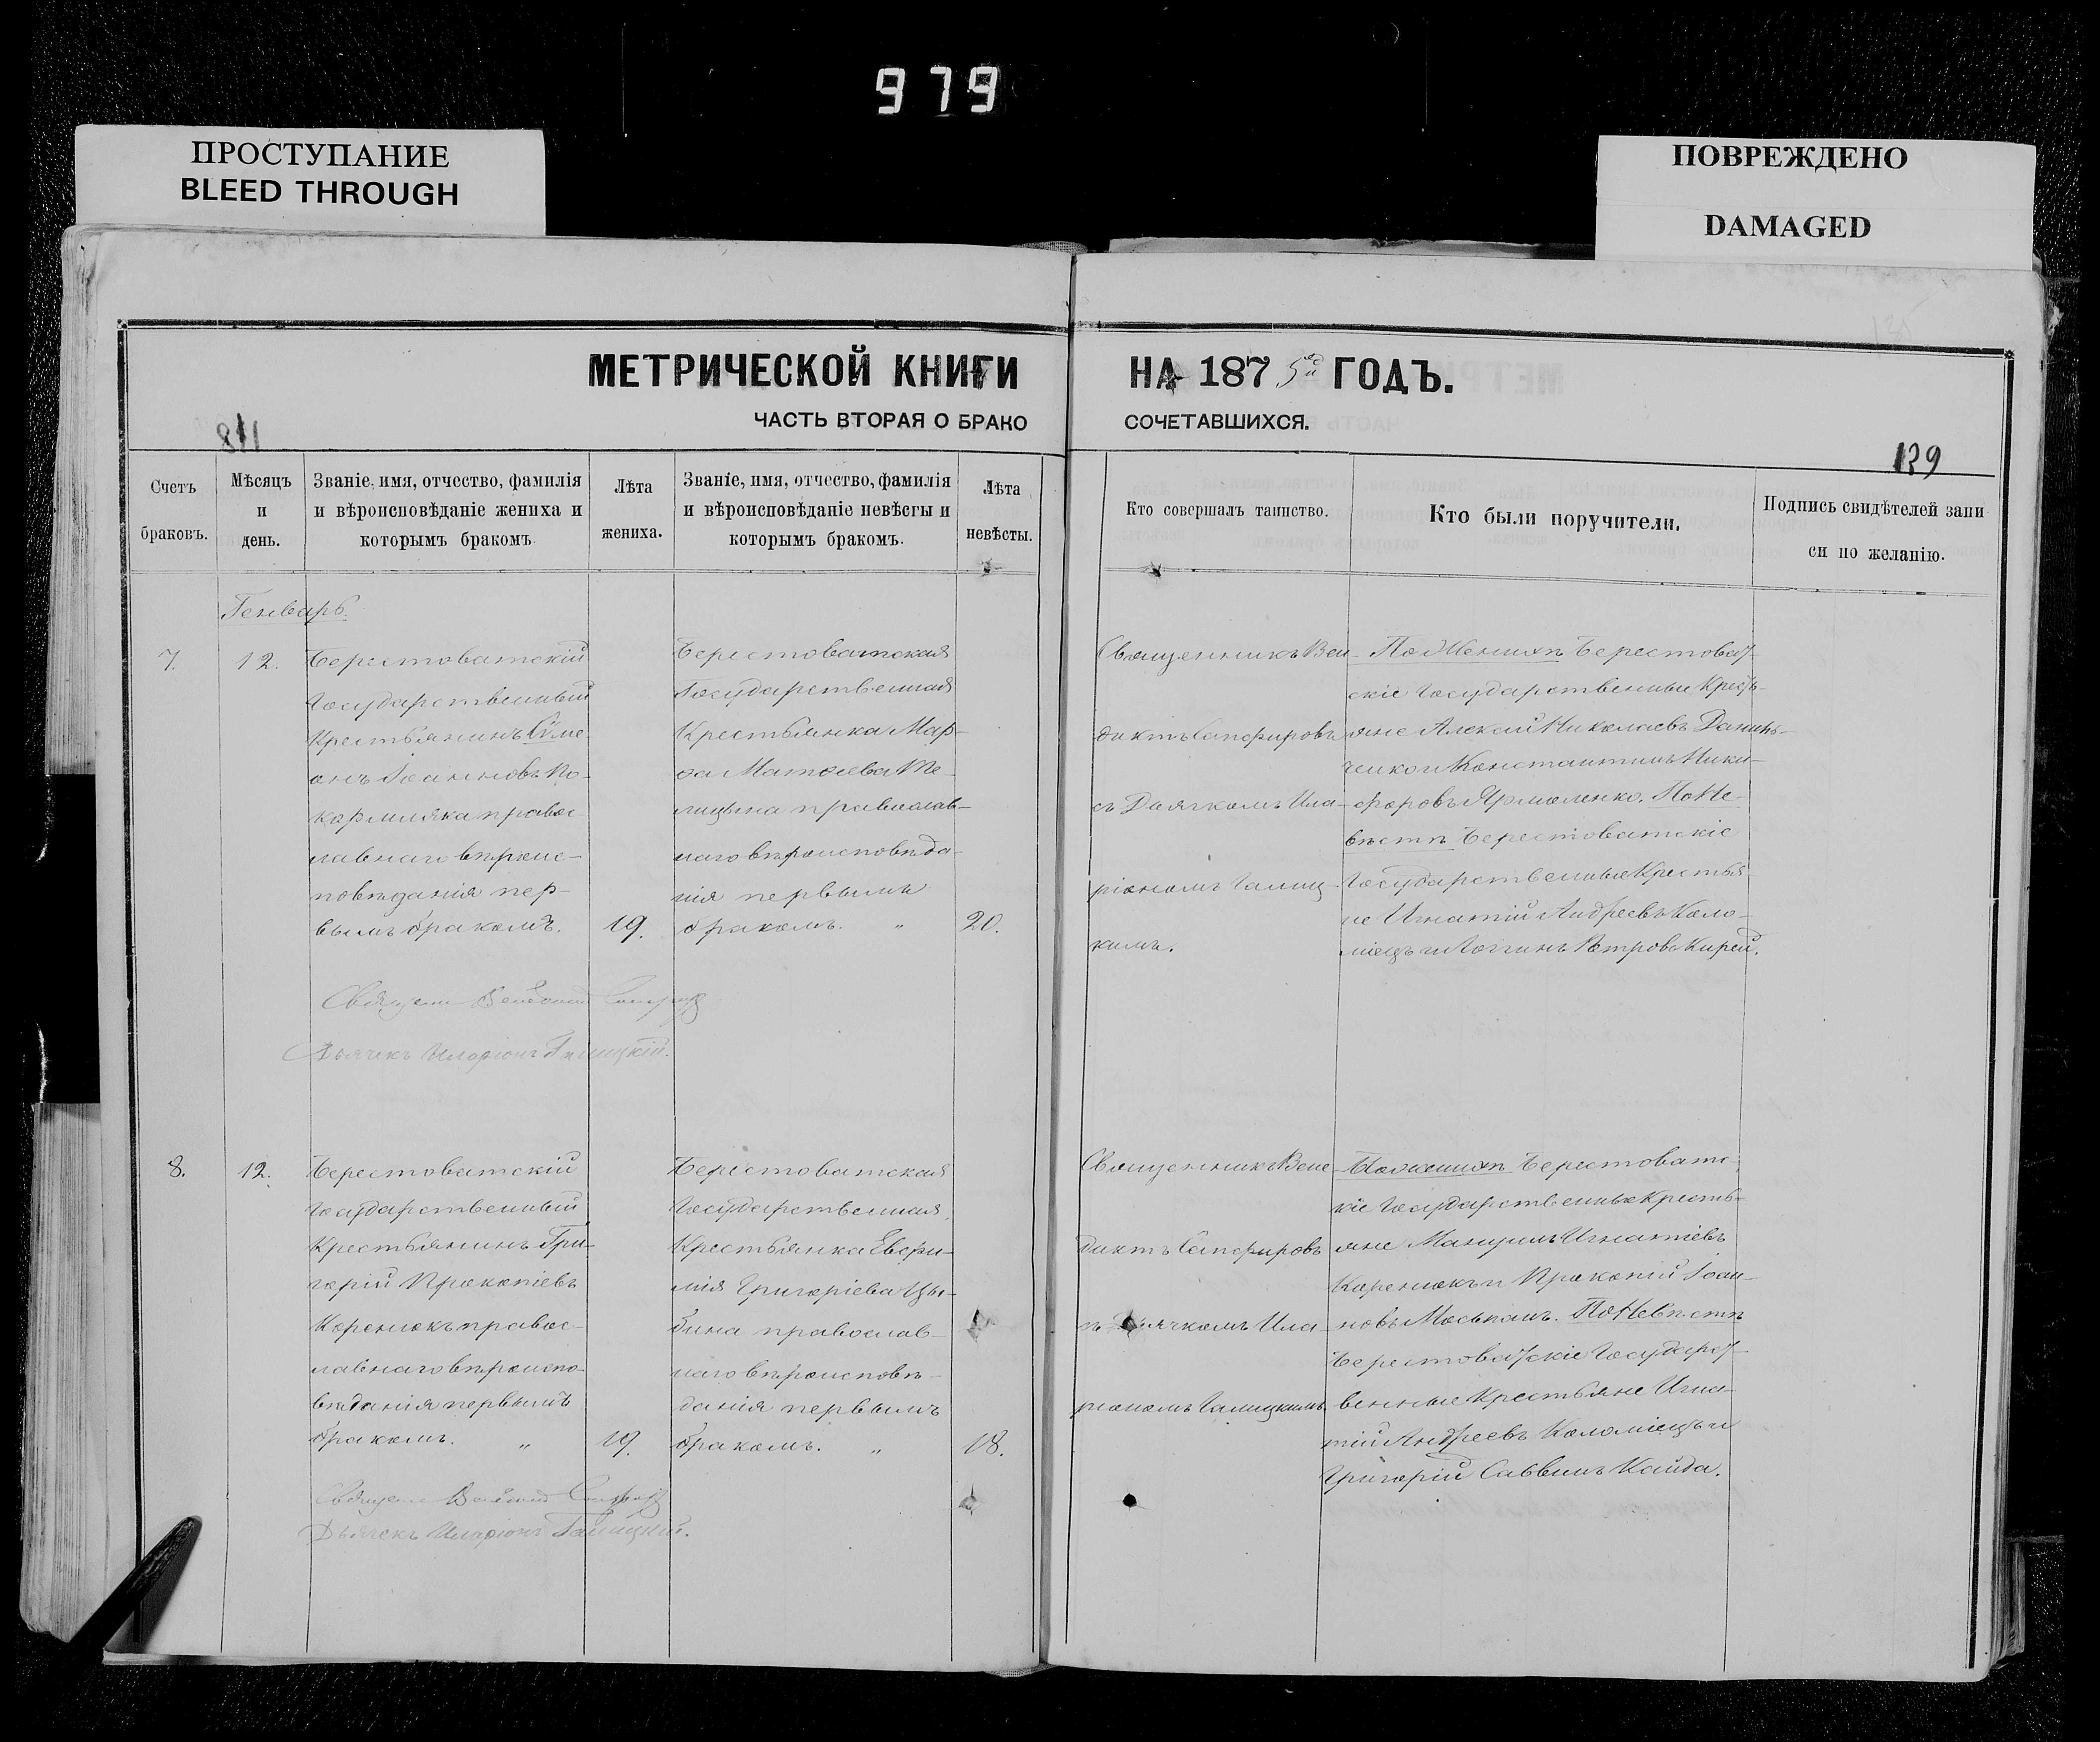 979
ПРОСТУПАНИЕ
BLEED THROUGH
ПОВРЕЖДЕНО
DAMAGED
МЕТРИЧЕСКОЙ КНИГИ НА 1875й ГОДЪ.
ЧАСТЬ ВТОРАЯ О БРАКО СОЧЕТАВШИХСЯ.
139
Счетъ
браковъ.
Мѣсяцъ
и
день.
Званіе, имя, отчество, фамилія
и вѣроисповѣданіе жениха и
которымъ бракомъ
Лѣта
жениха.
Званіе, имя, отчество, фамилія
и вѣроисповѣданіе невѣсты и
которымъ бракомъ.
Лѣта
невѣсты.
Кто совершалъ таинство.
Кто были поручители.
Подпись свидѣтелей запи
си по желанію.
Генварь.
7.
12.
Берестоватскій
Государственный
Крестьянинъ Сѵме-
онъ Іоанновъ По-
кормляка правос-
лавнаго вѣроис-
повѣданія пер-
вымъ бракомъ.
19.
Берестоватская
Государственная
Крестьянка Мар-
фа Матѳеева Те-
лицына православ-
наго вѣроисповѣда-
нія первымъ
бракомъ. "
20.
Священникъ Вени-
диктъ Сапфировъ
съ Дьячкомъ Ила-
ріономъ Галиц-
кимъ.
По Женихѣ Берестоват-
скіе Государственные Кресть-
яне Алексій Николаевъ Данил-
ченко и Константинъ Ники-
форовъ Ярмоленко. По Не-
вѣстѣ Берестоватскіе
Государственные Крестья-
не Игнатій Андреевъ Коло-
міецъ и Логгинъ Петровъ Кирей.
Дьячекъ Иларіонъ Галицкій.
8.
12.
Берестоватскій
Государственный
Крестьянинъ Гри-
горій Прокопіевъ
Коренюкъ правос-
лавнаго вѣроиспо-
вѣданія первымъ
бракомъ. "
19.
Берестоватская
Государственная
Крестьянка Евфи-
мія Григоріева Цы-
бина православ-
наго вѣроисповѣ-
данія первымъ
бракомъ. "
18.
Священникъ Вене-
диктъ Сапфировъ
съ Дьячкомъ Ила-
ріономъ Галицкимъ.
По женихѣ Берестоватс-
кіе Государственные Кресть-
яне Мануилъ Игнатіевъ
Коренюкъ и Прокопій Іоан-
новъ Моськаль. По Невѣстѣ
Берестоватскіе Государст-
венные Крестьяне Игна-
тій Андреевъ Коломіецъ и
Григорій Саввинъ Кайда.
Дьячекъ Иларіонъ Галицкій.